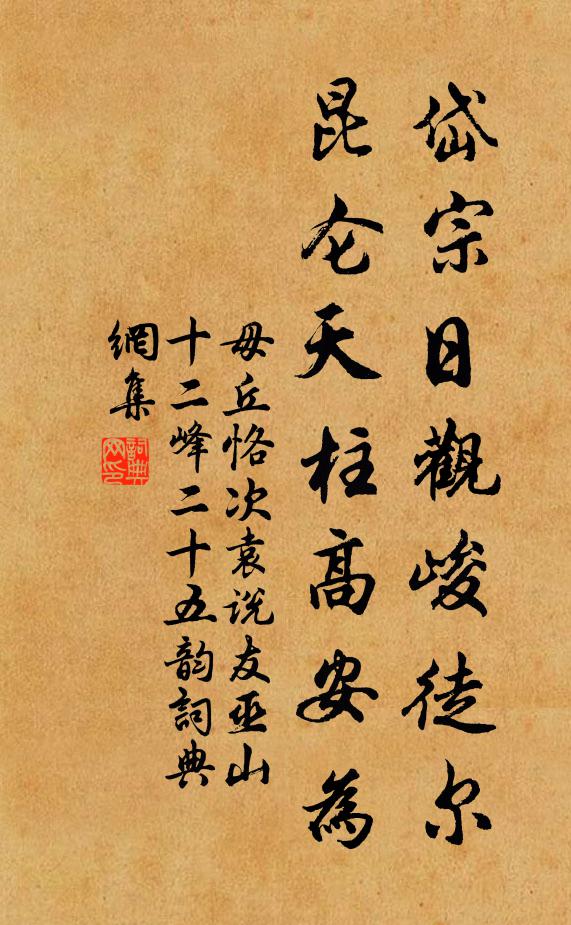 岱宗日觀峻徒尔
昆仑天柱高安為
毋丘恪次袁说友巫山
十二峰二十五韵詞典
網集
詞典
网印